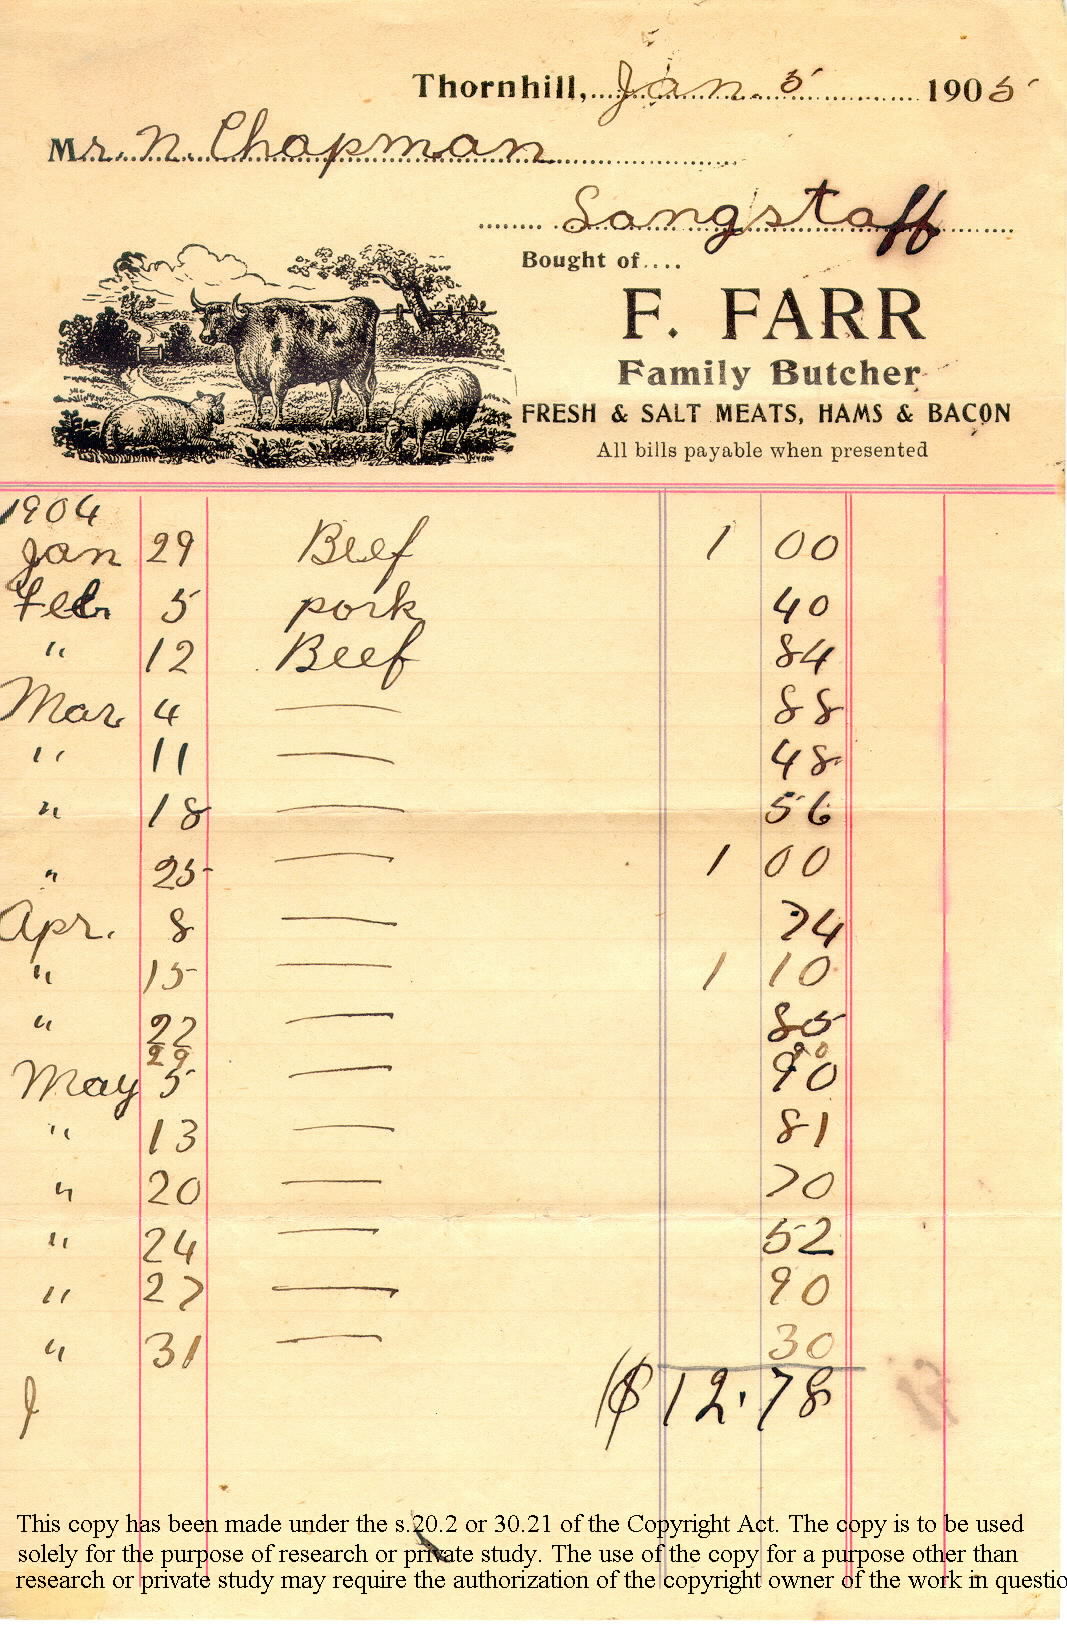 Thornhill, Jan. 5 1905
Mr. N. Chapman
Langstaff
Bought of....
F. FARR
Family Butcher
FRESH & SALT MEATS, HAMS & BACON
All bills payable when presented
1904
Jan 29 Beef 1 00
Feb. 5 pork 40
" 12 Beef 84
Mar 4 — 88
" 11 — 48
" 18 — 56
" 25 — 1 00
Apr. 8 — 74
" 15 — 1 10
" 22 — 85
29 90
May 5 — 90
" 13 — 81
" 20 — 70
" 24 — 52
" 27 — 90
" 31 — 30
$12.78
This copy has been made under the s.20.2 or 30.21 of the Copyright Act. The copy is to be used
solely for the purpose of research or private study. The use of the copy for a purpose other than
research or private study may require the authorization of the copyright owner of the work in questio